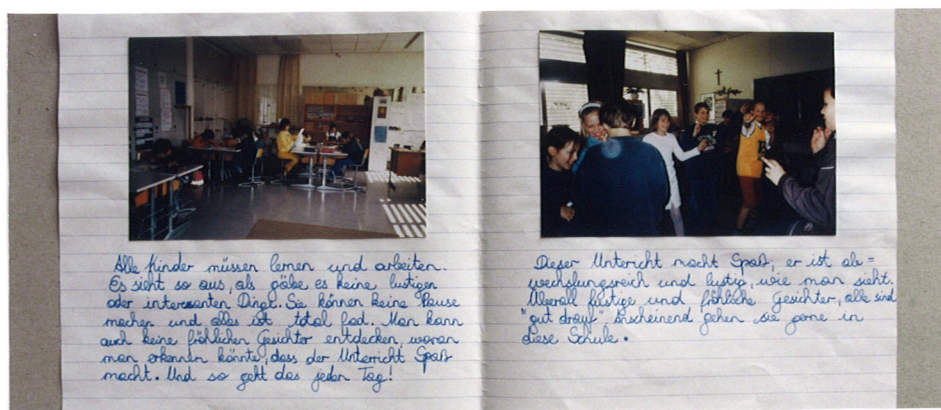 Alle Kinder müssen lernen und arbeiten.
Es sieht so aus, als gäbe es keine lustigen
oder interessanten Dinge. Sie können keine Pause
machen und alles ist total fad. Man kann
auch keine fröhlichen Gesichter entdecken, woran
man erkennen könnte, dass der Unterricht Spaß
macht. Und so geht das jeden Tag!
Dieser Unterricht macht Spaß, er ist ab=
wechslungsreich und lustig, wie man sieht.
Überall lustige und fröhliche Gesichter, alle sind
"gut drauf". Anscheinend gehen sie gerne in
diese Schule.